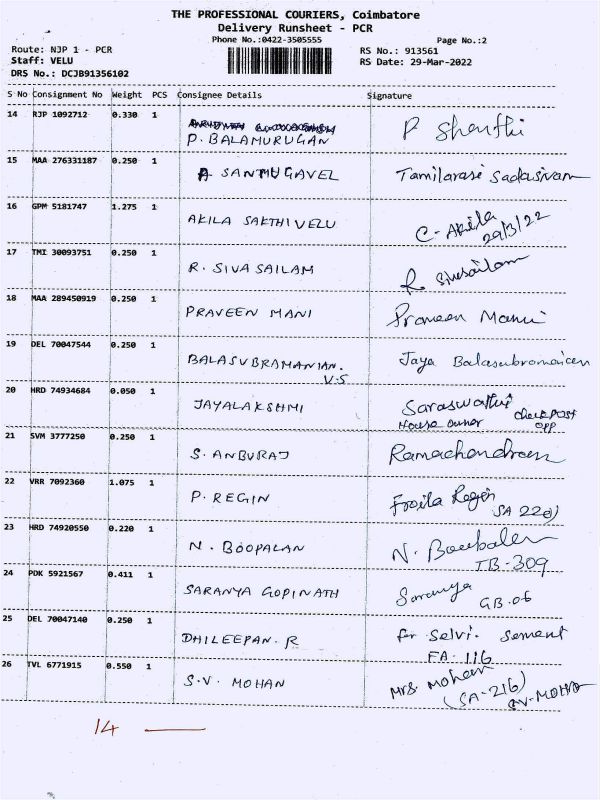 THE PROFESSIONAL COURIERS, Coimbatore
Delivery Runsheet - PCR
Phone No.:0422-3505555
Page No.:2
Route: NJP 1 - PCR
RS No.: 913561
Staff: VELU
RS Date: 29-Mar-2022
DRS No.: DCJB91356102
S No Consignment No Weight PCS Consignee Details Signature
14 RJP 1092712 0.330 1 P. BALAMURUGAN P Shanthi
15 MAA 276331187 0.250 1 A SANMUGAVEL Tamilarasi Sadasivam
16 GPM 5181747 1.275 1 AKILA SAKTHIVELU C- Akila
29/3/22
17 TMI 30093751 0.250 1 R. SIVASAILAM R Sivasailam
18 MAA 289450919 0.250 1 PRAVEEN MANI Praveen Mani
19 DEL 70047544 0.250 1 BALASUBRAMANIAN. Jaya Balasubramanian
V.S
20 HRD 74934684 0.050 1 JAYALAKSHMI Saraswathi
House owner checkpost
opp
21 SVM 3777250 0.250 1 S. ANBURAJ Ramachandran
22 VRR 7092360 1.075 1 P. REGIN Regin
23 HRD 74920550 0.220 1 N. BOOPALAN N. Boobalan
TB-309
24 PDK 5921567 0.411 1 SARANYA GOPINATH Saranya
GB-06
25 DEL 70047140 0.250 1 DHILEEPAN. R for Selvi.
FA-116
26 TVL 6771915 0.550 1 S.V. MOHAN Mrs. Mohan
(SA-216)
SV-MOHAN
14